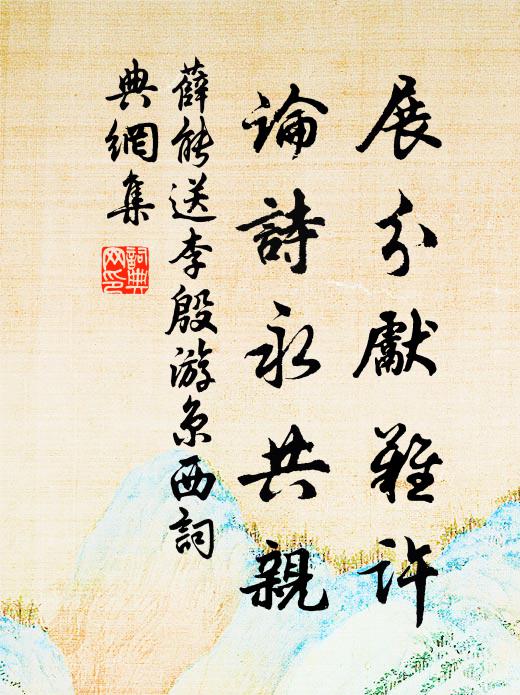 展分獻難許
論詩永共親
薛能送李殷游京西詞
典網集
詞典
网印